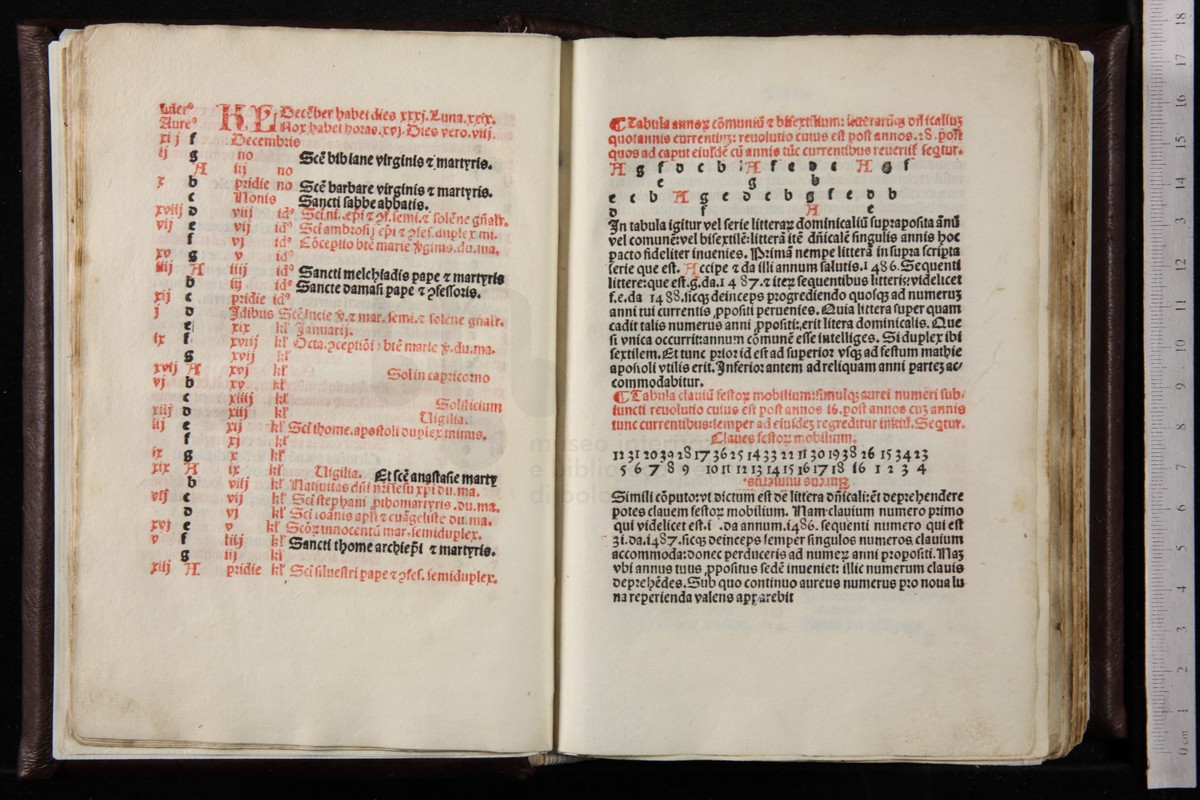 Nũer⁹ KL Decẽber habet dies xxxj. Luna. xxix.
Aure⁹ Nox habet horas. xvj. Dies vero. viij.
xiij f Decembris
ij g iiij no Scẽ bibiane virginis ⁊ martyris.
A iij no
x b pridie no Scẽ barbare virginis ⁊ martyris.
c Nonis Sancti sabbe abbatis.
xviij d viij id⁹ Sci.ni.ep̃i ⁊ ꝯf. semi. ⁊ solẽne gñalr.
vij e vij id⁹ Sci ambrosij ep̃i ⁊ ꝯfes. duplex mi.
f vj id⁹ Cõceptio btẽ marie ꝟginis. du. ma.
xv g v id⁹
iiij A iiij id⁹ Sancti melchiadis pape ⁊ martyris
b iij id⁹ Sancte damasi pape ⁊ ꝯfessoris.
xij c pridie id⁹
j d Idibus Scẽ lucie ꝟ. ⁊ mar. semi. ⁊ solẽne gñalr.
e xix kl' Januarij.
ix f xviij kl' Octa. ꝯceptiõi s btẽ marie ꝟ. du. ma.
g xvij kl'
xvij A xvj kl' Sol in capricorno
vj b xv kl'
c xiiij kl' Solsticium
xiiij d xiij kl' Uigilia.
iij e xij kl' Sci thome. apostoli duplex minus.
f xj kl'
xi g x kl'
xix A ix kl' Uigilia. Et scẽ anastasie marty
b viij kl' Natiuitas dñi nr̃i iesu xpi du. ma.
viij c vij kl' Sci stephani ꝓthomartyris. du. ma.
d vj kl' Sci ioãnis apl'i ⁊ euãgeliste du. ma.
xvj e v kl' Scõꝝ innocentũ mar. semiduplex.
v f iiij kl' Sancti thome archiep̃i ⁊ martyris.
g iij kl'
xiij A pridie kl' Sci siluestri pape ⁊ ꝯfes. semiduplex.
¶ Tabula annoꝝ cõmuniũ ⁊ bisextilium: litterarũqꝫ dñicaliũ
quotannis currentiũ: reuolutio cuius est post annos. 28. post
quos ad caput eiusdẽ cũ annis tũc currentibus reuertit᷑ seqtur.
A g f d c b A f e d c A g f
e g b
e c b A g e d c b g f e d b
d f A e
In tabula igitur vel serie litteraꝝ dominicaliũ supraposita ãnũ
vel comunẽ: vel bisextilẽ: litterã itẽ dñicalẽ singulis annis hoc
pacto fideliter inuenies. Primã nempe litterã in supra scripta
serie que est. A ccipe ⁊ da illi annum salutis. 1486. Sequenti
littere: que est. g. da. 1487. ⁊ iteꝝ sequentibus litteris: videlicet
f. e. da 1488. sicqꝫ deinceps progrediendo quosqꝫ ad numerũ
anni tui currentis ꝓpositi peruenies. Quia littera super quam
cadit talis numerus anni ꝓpositi: erit litera dominicalis. Que
si vnica occurrit: annum cõmunẽ esse intelliges. Si duplex ibi
sextilem. Et tunc prior id est ad superior vsqꝫ ad festum mathie
apostoli vtilis erit. Inferior antem ad reliquam anni parteꝫ ac/
commodabitur.
¶ Tabula clauiũ festoꝝ mobilium: simulqꝫ aurei numeri sub/
iuncti reuolutio cuius est post annos 16. post annos cuꝫ annis
tunc currentibus: semper ad eiusdeꝫ regreditur initiũ. Seqtur.
Claues festoꝝ mobilium.
12 31 20 39 28 17 36 25 14 33 22 11 30 19 38 26 15 34 23
5 6 7 8 9 10 11 12 13 14 15 16 17 18 16 1 2 3 4
Aureus numerus.
Simili cõputo: vt dictum est de littera dñicali: ẽt deprehendere
potes clauem festoꝝ mobilium. Nam clauium numero primo
qui videlicet est. i . da annum. 1486. sequenti numero qui est
31. da. 1487. sicqꝫ deinceps semper singulos numeros clauium
accommoda: donec perduceris ad numeꝝ anni propositi. Naꝫ
vbi annus tuus ꝓpositus sedẽ inueniet: illic numerum clauis
deprehẽdes. Sub quo continuo aureus numerus pro noua lu
na reperienda valens apparebit